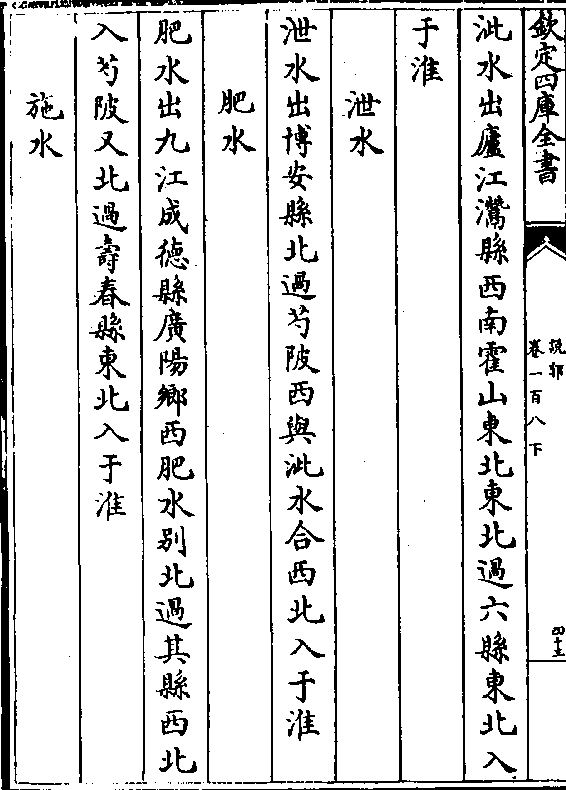 欽定四庫全書
說郛
卷一百八下
四十三
沘水出廬江灊縣西南霍山東北東北過六縣東北入
于淮
泄水
泄水出博安縣北過芍陂西與沘水合西北入于淮
肥水
肥水出九江成德縣廣陽鄉西肥水别北過其縣西北
入芍陂又北過壽春縣東北入于淮
施水